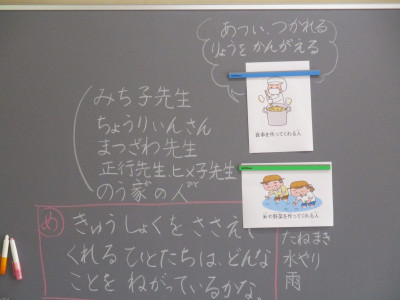 あつい、つかれる
りょうをかんがえる
食事を作ってくれる人
みち子先生
ちょうりいんさん
まつざわ先生
正行先生、ヒメ子先生
のう家の人
米や野菜を作ってくれる人
たねまき
水やり
雨
め
きゅうしょくをささえて
くれるひとたちは、どんな
ことをねがっているかな。